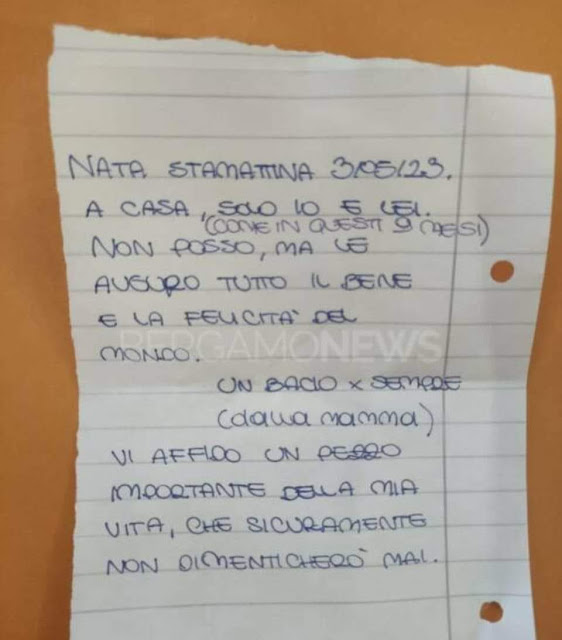 NATA STAMATTINA 3/05/23.
A CASA, SOLO IO E LEI.
(COME IN QUESTI 9 MESI)
NON POSSO, MA LE
AUGURO TUTTO IL BENE
E LA FELICITA' DEL
MONDO.
BERGAMONEWS
UN BACIO x SEMPRE
(dalla mamma)
VI AFFIDO UN PEZZO
IMPORTANTE DELLA MIA
VITA, CHE SICURAMENTE
NON DIMENTICHERO' MAI.